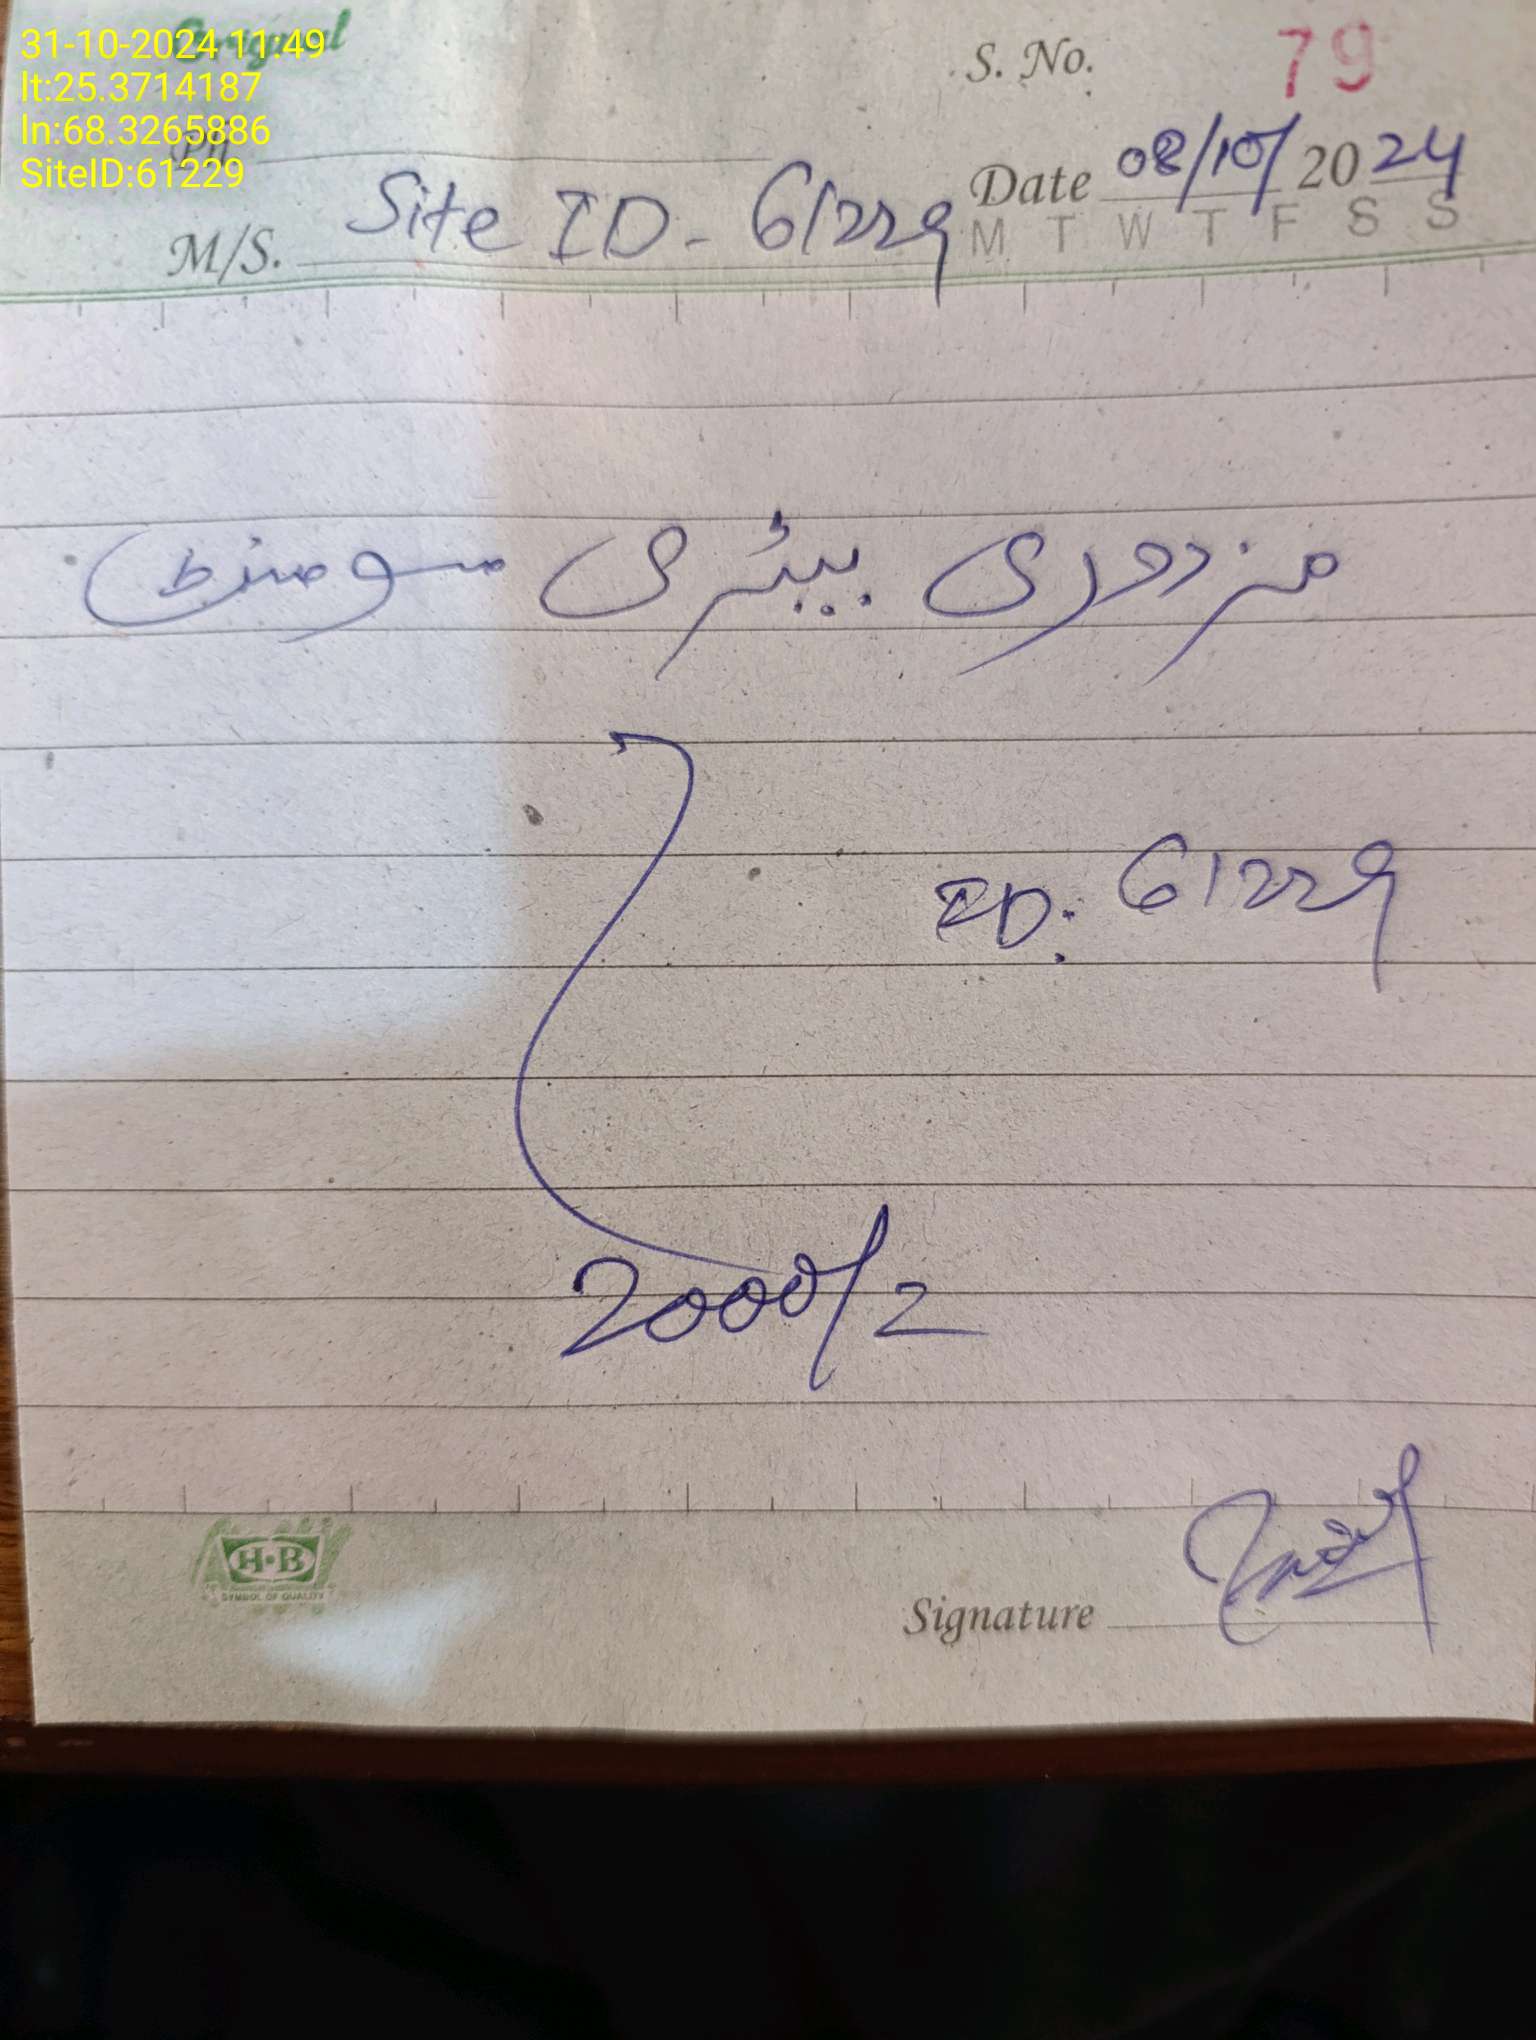 31-10-2024 11:49
lt:25.3714187
ln:68.3265886
SiteID:61229
Original
S. No. 79
Ph
Date 08/10/2024
M/S. Site ID - 61229
M T W T F S S
مزدوری بیٹری
ID: 61229
2000/=
H-B
SYMBOL OF QUALITY
Signature